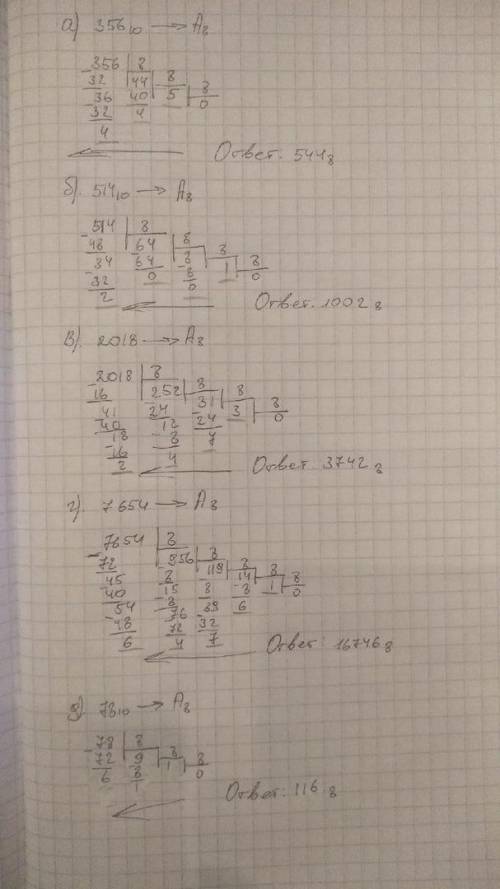 а) 356₁₀ → A₈
356 | 8
32 | 44 | 8
36 | 40 | 5 | 8
32 | 4 | 0
4
Ответ: 544₈
б). 514₁₀ → A₈
514 | 8
48 | 64 | 8
34 | 64 | 8 | 8
32 | 0 | 8 | 1 | 8
2 | 0 | 0
Ответ. 1002₈
в). 2018 → A₈
2018 | 8
16 | 252 | 8
41 | 24 | 31 | 8
40 | 12 | 24 | 3 | 8
18 | 8 | 7 | 0
16 | 4
2
Ответ: 3742₈
г). 7654 → A₈
7654 | 8
72 | 956 | 8
45 | 8 | 119 | 8
40 | 15 | 8 | 14 | 8
54 | 8 | 39 | 8 | 1 | 8
48 | 76 | 32 | 6 | 0
6 | 72 | 7
4
Ответ: 16746₈
д) 78₁₀ → A₈
78 | 8
72 | 9 | 8
6 | 8 | 1 | 8
1 | 0
Ответ: 116₈